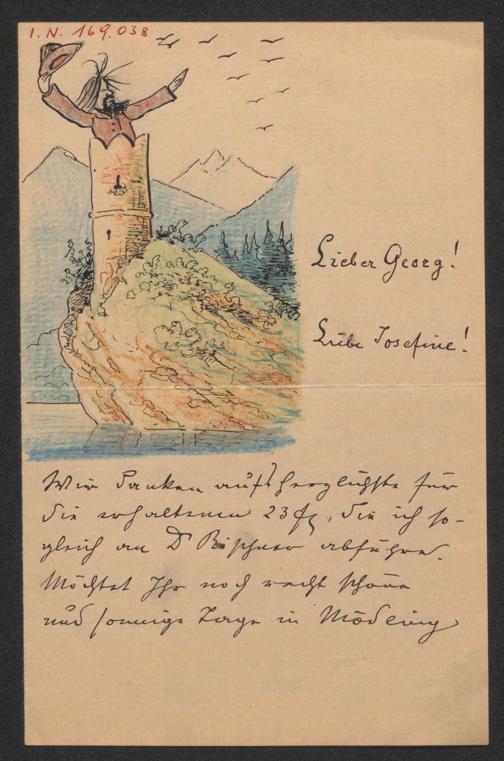 I. N. 169.038
Lieber Georg!
Liebe Josefine!
Wir danken aufs herzlichste für
die erhaltenen 23 fl, die ich so-
gleich an D abführe.
Möchtet Ihr noch recht schöne
und sonnige Tage in Mödling